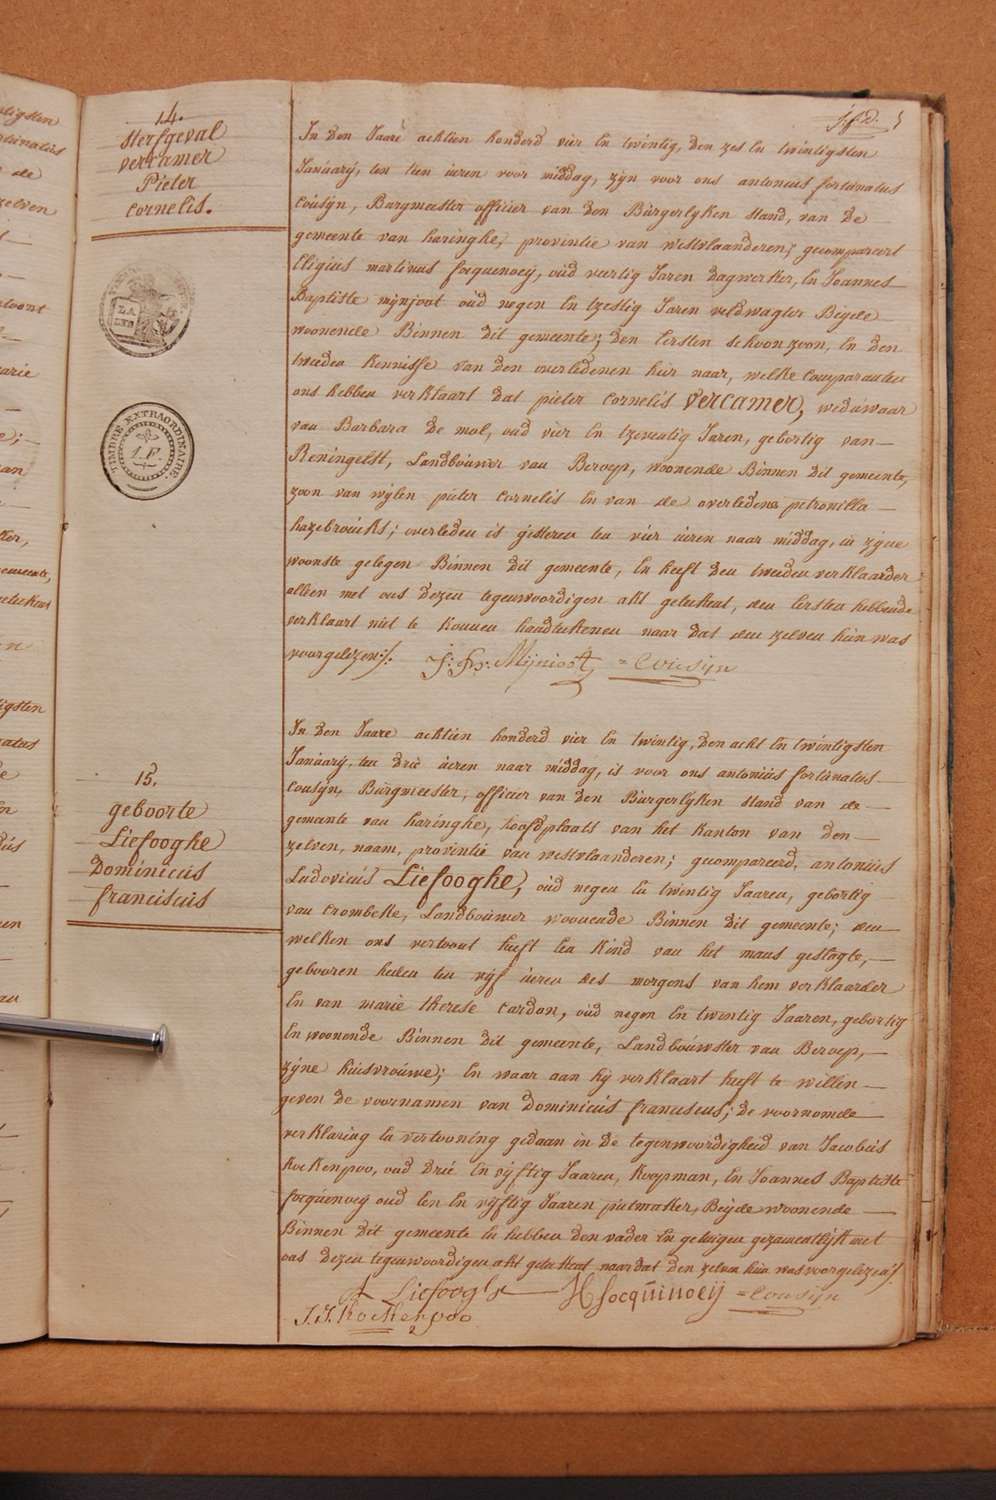 14.
Sterfgeval
vercamer
Pieter
Cornelis.
TIMBRE EXTRAORDINAIRE.
1.F.
In den Jaare achtien honderd vier en twintig, den zes en twintigsten
January, ten tien uren voor middag, zijn voor ons antonius fortunatus
Cousijn, Burgmeester officier van den Burgerlyken Stand, van de
gemeente van haringhe, provintie van westvlaanderen; gecompareert
Eligius martinus focquenoeij, oud veertig Jaren dagwerker, En Joannes
Baptiste mijnjoot oud negen En tzestig Jaren veldwagter Beijde
woonende Binnen dit gemeente; den Eersten schoonzoon, En den
tweeden kennisse van den overledenen hier naar, welke Comparanten
ons hebben verklaart dat pieter Cornelis vercamer, weduwaar
van Barbara De mol, oud vier En tzeventig Jaren, geboortig van
Reningelst, Landbouwer van Beroep, woonende Binnen dit gemeente,
zoon van wijlen pieter Cornelis En van de overledene petronilla
hazebroucks; overleden is gisteren ten vier uren naar middag, in zijne
woonste gelegen Binnen dit gemeente, En heeft den tweeden verklaarder
alleen met ons dezen tegenwoordigen akt geteekent, den Eersten hebbende
verklaart niet te konnen handteekenen naar dat den zelven hun was
voorgelezen./.
J: Bp: Mijnioot = Cousijn
15.
geboorte
Liefooghe
Dominicus
franciscus
In den Jaare achtien honderd vier En twintig, den acht En twintigsten
January, ten drie uren naar middag, is voor ons antonius fortunatus
Cousijn, Burgmeester, officier van den Burgerlyken stand van de
gemeente van haringhe, hoofdplaats van het kanton van den
zelven, naam, provintie van westvlaanderen; gecompareerd, antonius
Ludovicus Liefooghe, oud negen En twintig Jaaren, gebortig
van Crombeke, Landbouwer woonende Binnen dit gemeente; den
welken ons vertoont heeft Een kind van het mans geslagte,
gebooren heden ten vijf uren des morgens van hem verklaarder
En van marie therese Cardon, oud negen En twintig Jaaren, gebortig
En woonende Binnen dit gemeente, Landbouwster van Beroep,
zijne huisvrouwe; En waar aan hij verklaart heeft te willen
geven de voornamen van Dominicus franciscus; de voornomde
verklaring En vertooning gedaan in de tegenwoordigheid van Jacobus
Kockenpoo, oud Drie En vijftig Jaaren, Koopman, En Joannes Baptiste
focquenoeij oud Een En vijftig Jaaren putmaker, Beijde woonende
Binnen dit gemeente En hebben den vader En getuigen gezamentlijk met
ons dezen tegenwoordigen akt geteekent naar dat den zelven hun was voorgelezen/.
A Liefooghe H focquinoeij = Cousijn
J.J. Kockenpoo